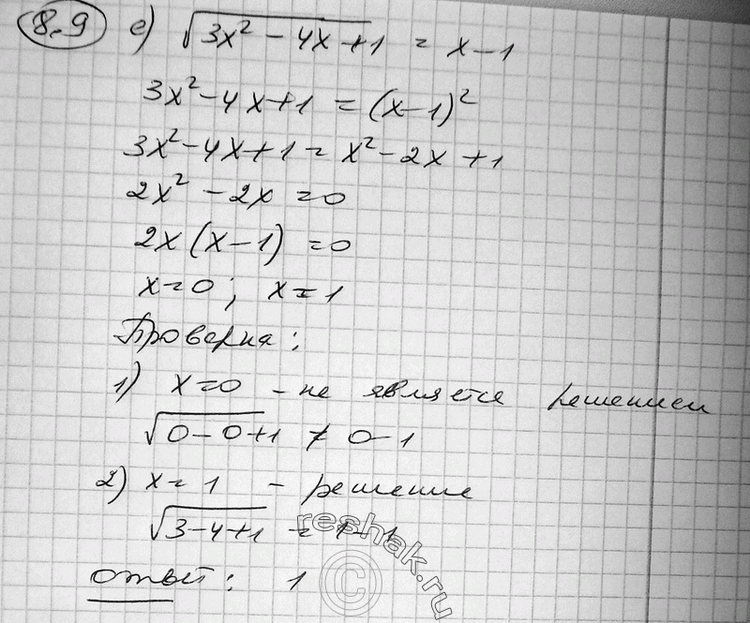 8.9 е) √(3x² - 4x + 1) = x - 1
3x² - 4x + 1 = (x - 1)²
3x² - 4x + 1 = x² - 2x + 1
2x² - 2x = 0
2x(x - 1) = 0
x = 0; x = 1
Проверка:
1) x = 0 - не является решением
√(0 - 0 + 1) ≠ 0 - 1
2) x = 1 - решение
√(3 - 4 + 1) = 1 - 1
ответ: 1
reshak.ru
©